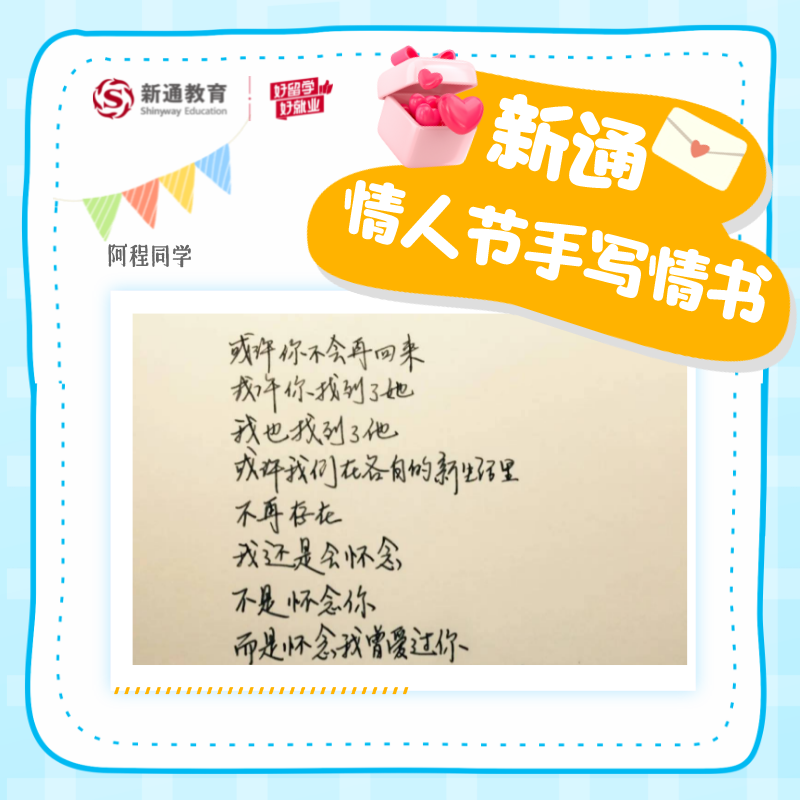 新通教育
Shinyway Education
好留学
好就业
新通
情人节手写情书
阿程同学
或许你不会再回来
或许你找到了她
我也找到了他
或许我们在各自的新生活里
不再存在
我还是会怀念
不是怀念你
而是怀念我曾爱过你